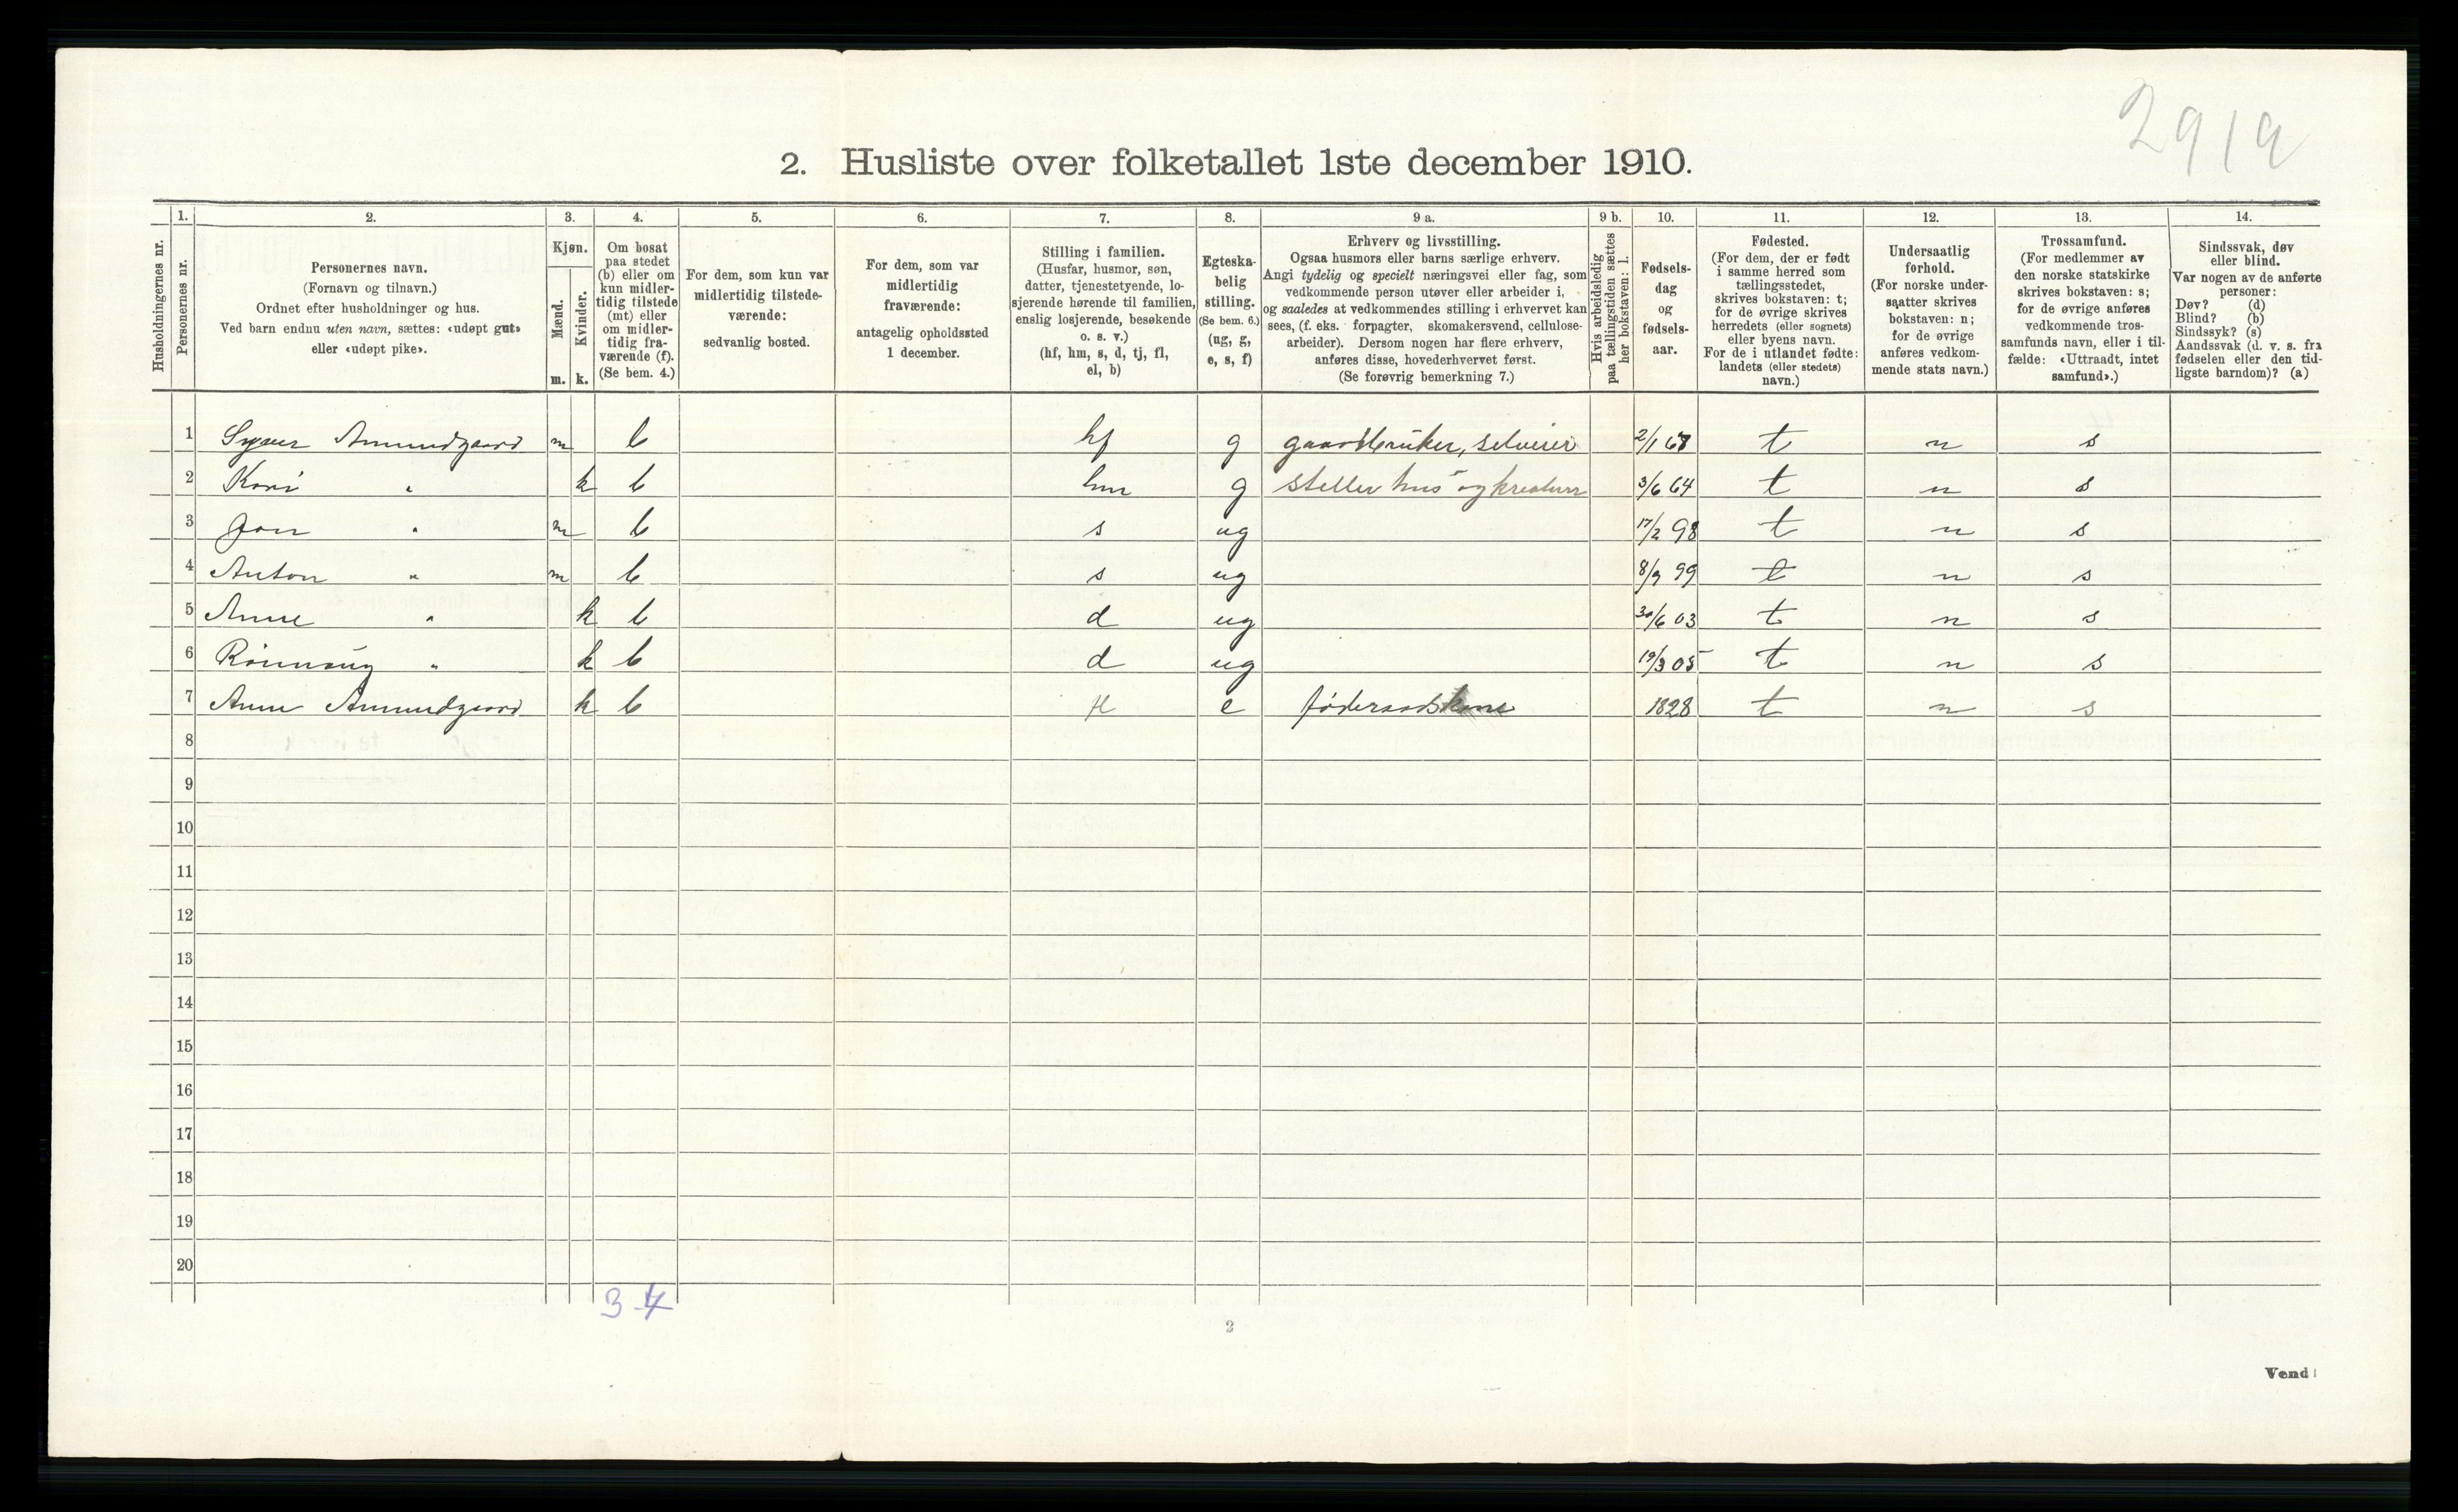 2919
2. Husliste over folketallet 1ste december 1910.
Husholdningernes nr.
1. Personernes nr.
2. Personernes navn. (Fornavn og tilnavn.) Ordnet efter husholdninger og hus. Ved barn endnu uten navn, sættes: «udøpt gut» eller «udøpt pike».
3. Kjøn. Mænd. m. Kvinder. k.
4. Om bosat paa stedet (b) eller om kun midler- tidig tilstede (mt) eller om midler- tidig fra- værende (f). (Se bem. 4.)
5. For dem, som kun var midlertidig tilstede- værende: sedvanlig bosted.
6. For dem, som var midlertidig fraværende: antagelig opholdssted 1 december.
7. Stilling i familien. (Husfar, husmor, søn, datter, tjenestetyende, lo- sjerende hørende til familien, enslig losjerende, besøkende o. s. v.) (hf, hm, s, d, tj, fl, el, b)
8. Egteska- belig stilling. (Se bem. 6.) (ug, g, e, s, f)
9 a. Erhverv og livsstilling. Ogsaa husmors eller barns særlige erhverv. Angi tydelig og specielt næringsvei eller fag, som vedkommende person utøver eller arbeider i, og saaledes at vedkommendes stilling i erhvervet kan sees, (f. eks. forpagter, skomakersvend, cellulose- arbeider). Dersom nogen har flere erhverv, anføres disse, hovederhvervet først. (Se forøvrig bemerkning 7.)
9 b. Hvis arbeidsledig paa tællingstiden sættes her bokstaven: l.
10. Fødsels- dag og fødsels- aar.
11. Fødested. (For dem, der er født i samme herred som tællingsstedet, skrives bokstaven: t; for de øvrige skrives herredets (eller sognets) eller byens navn. For de i utlandet fødte: landets (eller stedets) navn.)
12. Undersaatlig forhold. (For norske under- saatter skrives bokstaven: n; for de øvrige anføres vedkom- mende stats navn.)
13. Trossamfund. (For medlemmer av den norske statskirke skrives bokstaven: s; for de øvrige anføres vedkommende tros- samfunds navn, eller i til- fælde: «Uttraadt, intet samfund».)
14. Sindssvak, døv eller blind. Var nogen av de anførte personer: Døv? (d) Blind? (b) Sindssyk? (s) Aandssvak (d. v. s. fra fødselen eller den tid- ligste barndom)? (a)
1 Syver Amundgaard m b hf g gaardbruker, selveier 2/1 67 t n s
2 Kari " k b hm g steller hus og kreature 3/6 64 t n s
3 Jon " m b s ug 17/2 98 t n s
4 Anton " m b s ug 8/9 99 t n s
5 Anne " k b d ug 30/6 03 t n s
6 Rönnaug " k b d ug 19/3 05 t n s
7 Anne Amundgaard k b fl e föderaadskone 1828 t n s
8
9
10
11
12
13
14
15
16
17
18
19
20
3 4
2
Vend!